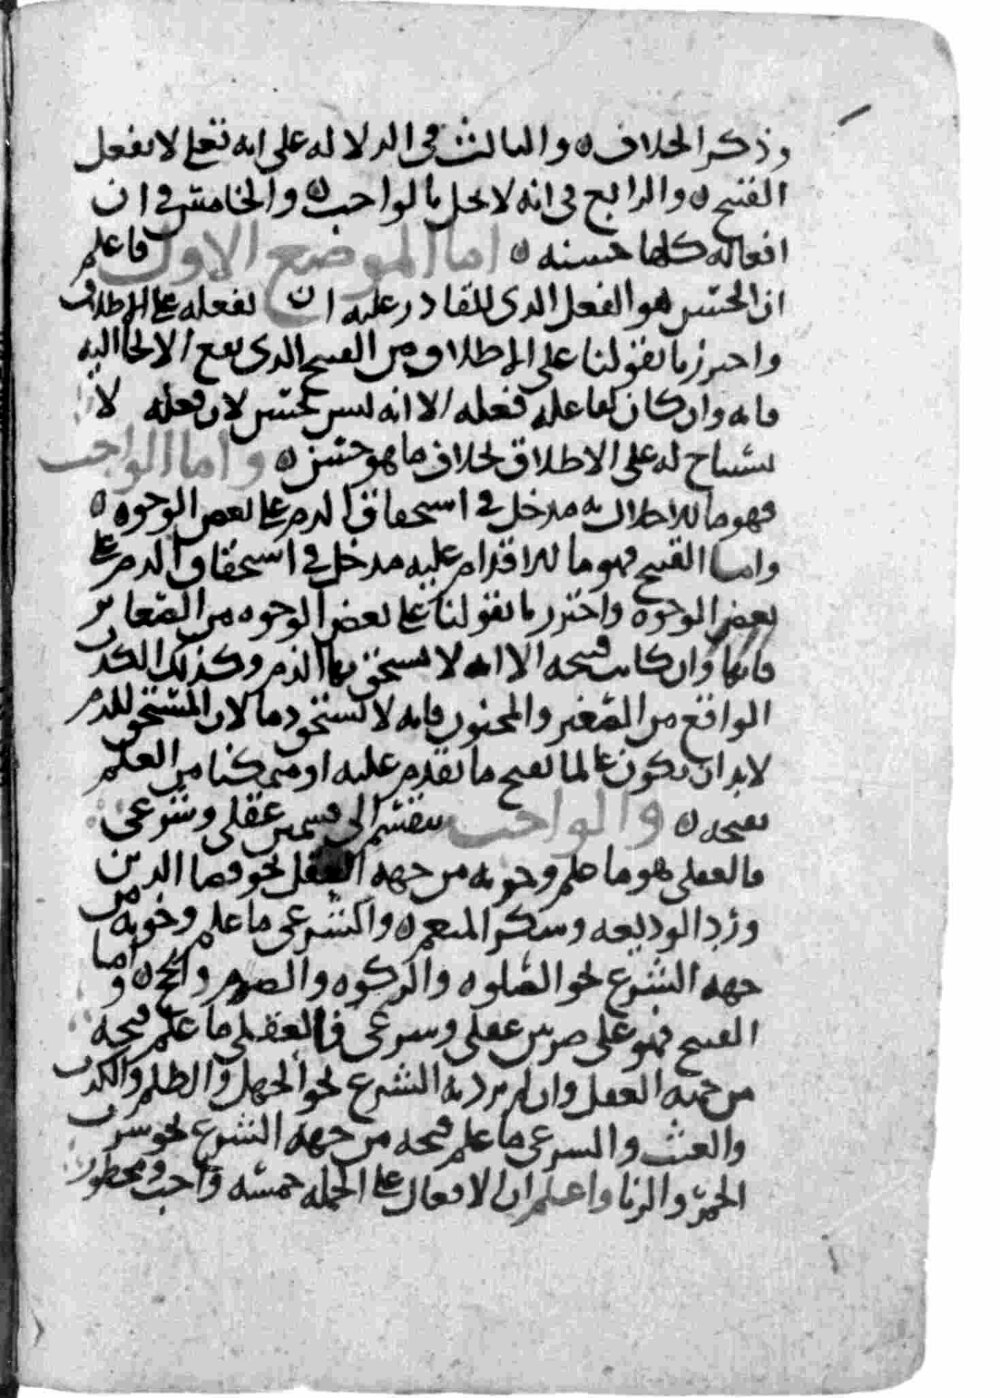 وذكر الخلاف ۞ والثالث في الدلالة على انه تعلى لا يفعل
القبيح ۞ والرابع في انه لا يخل بالواجب ۞ والخامس في ان
افعاله كلها حسنه ۞ اما الموضع الاول فاعلم
ان الحسن هو الفعل الذي للقادر عليه ان يفعله على الاطلاق
واحترزنا بقولنا على الاطلاق من القبيح الذي يقع الالجا اليه
فانه وان كان لفاعله فعله الا انه ليس بحسن لان فعله لا
يستباح له على الاطلاق بخلاف ما هو حسن ۞ واما الواجب
فهو ما للاخلال به مدخل في استحقاق الذم على بعض الوجوه ۞
واما القبيح فهو ما للاقدام عليه مدخل في استحقاق الذم على
بعض الوجوه واحترزنا بقولنا على بعض الوجوه من الصغاير
فانها وان كانت قبيحه الا انه لا يستحق بها الذم وكذلك الكذب
الواقع من الصغير والمجنون فانه لا يستحق ذما لان المستحق للذم
لابد ان يكون عالما بقبح ما يقدم عليه او متمكنا من العلم
بقبحه ۞ والواجب ينقسم الى قسمين عقلي وشرعي
فالعقلي هو ما علم وجوبه من جهه العقل نحو قضا الدين
ورد الوديعه وشكر المنعم ۞ والشرعي ما علم وجوبه من
جهه الشرع نحو الصلوه والزكوه والصوم والحج ۞ واما
القبيح فهو على ضربين عقلي وشرعي فالعقلي ما علم قبحه
من جهه العقل وان لم يرد به الشرع نحو الجهل والظلم والكذب
والعبث والشرعي ما علم قبحه من جهه الشرع نحو شرب
الخمر والزنا واعلم ان الافعال على الجمله خمسه واجب ومحظور